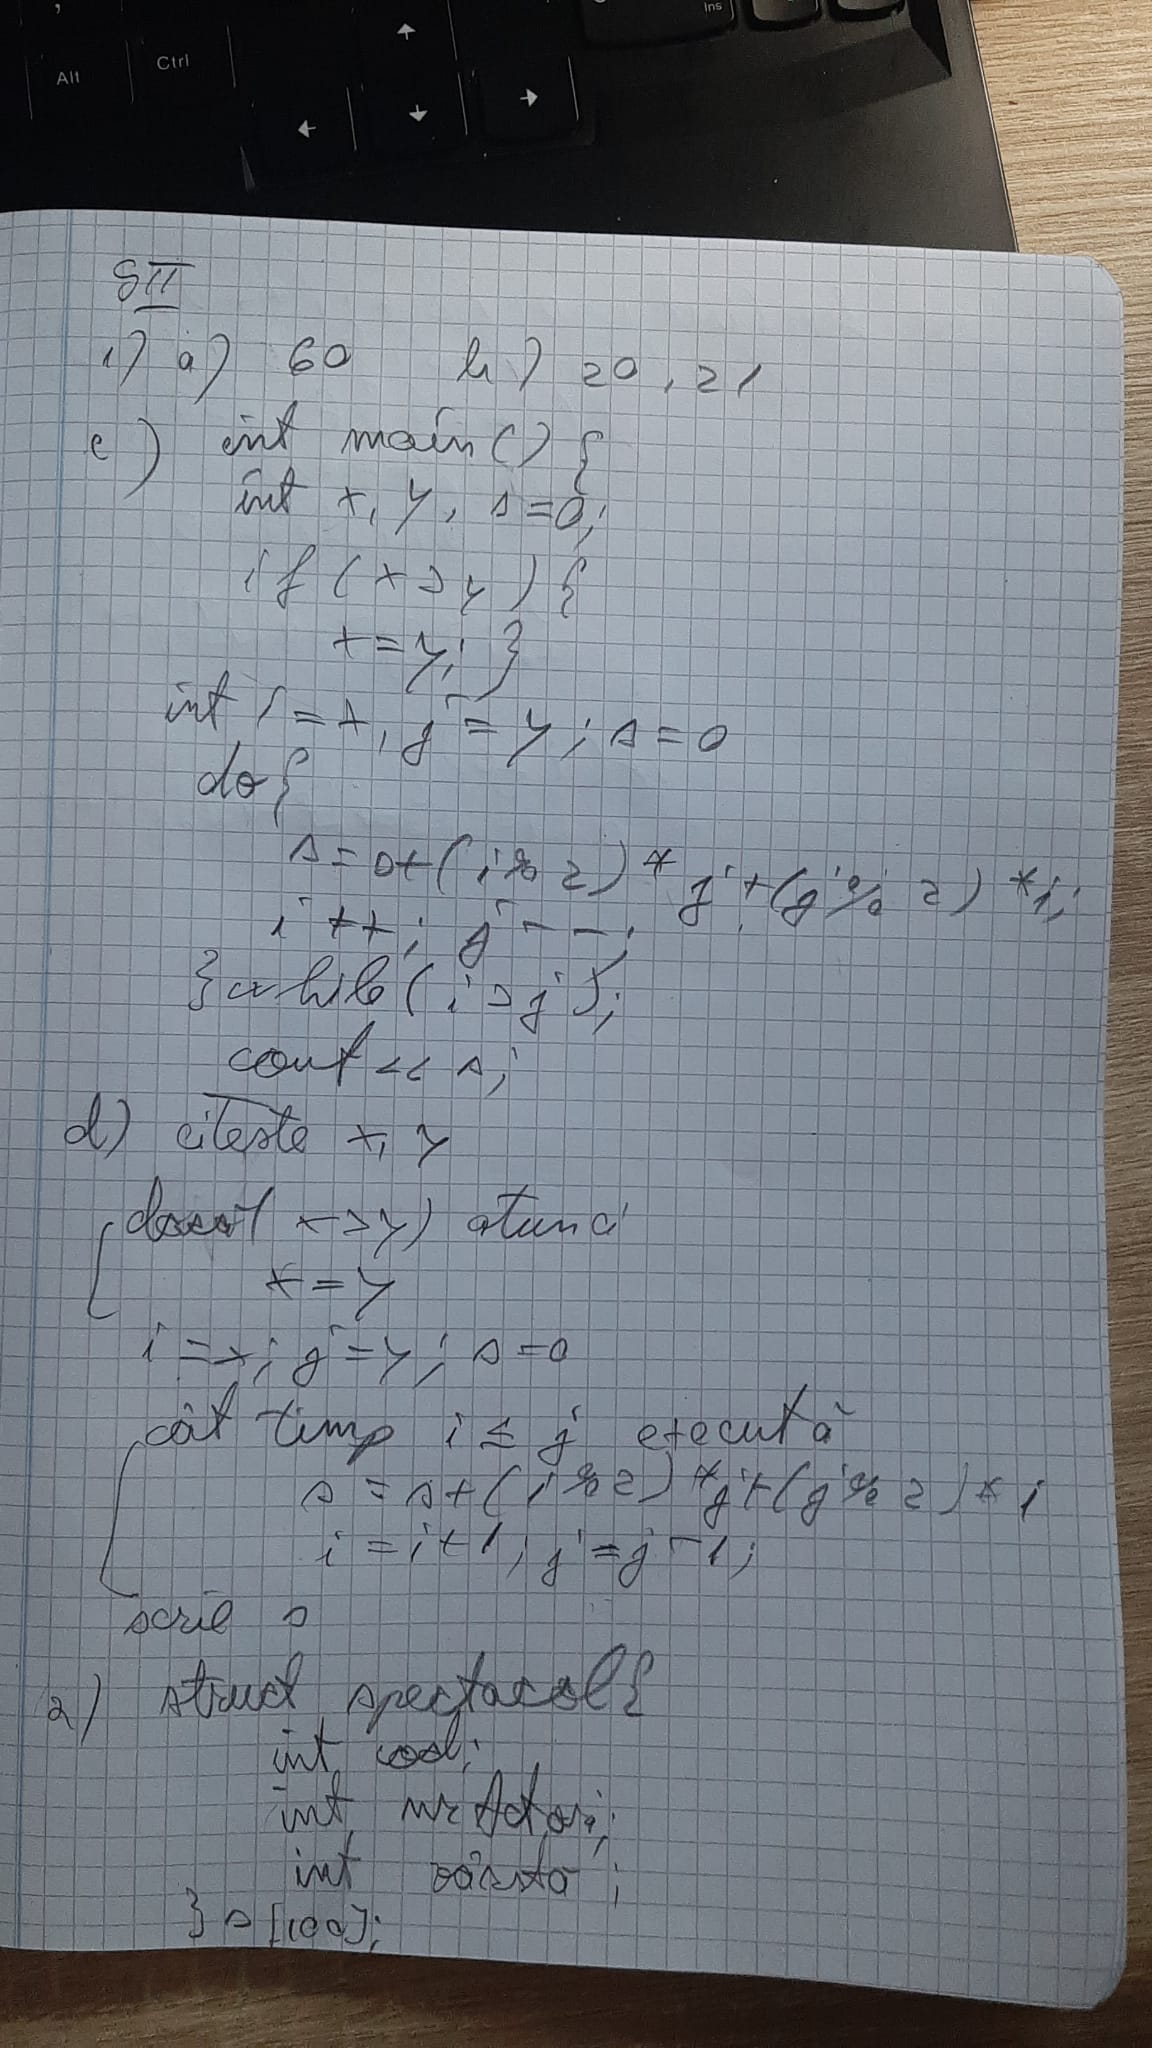 Ins
Alt
Ctrl
SII
1) a) 60 b) 20, 21
c) int main() {
int x, y, s=0;
if (x>y) {
x=y; }
int i=x, j=y; s=0
do{
s=s+(i%2)*j+(j%2)*i;
i++; j--;
}while(i>j);
cout<<s;
d) citeste x, y
dacă(x>y) atunci
x=y
i=x; j=y; s=0
cât timp i≤j execută
s=s+(i%2)*j+(j%2)*i
i=i+1; j=j-1;
scrie s
2) struct spectacol{
int cod;
int nrActori;
int vârsta;
} s[100];